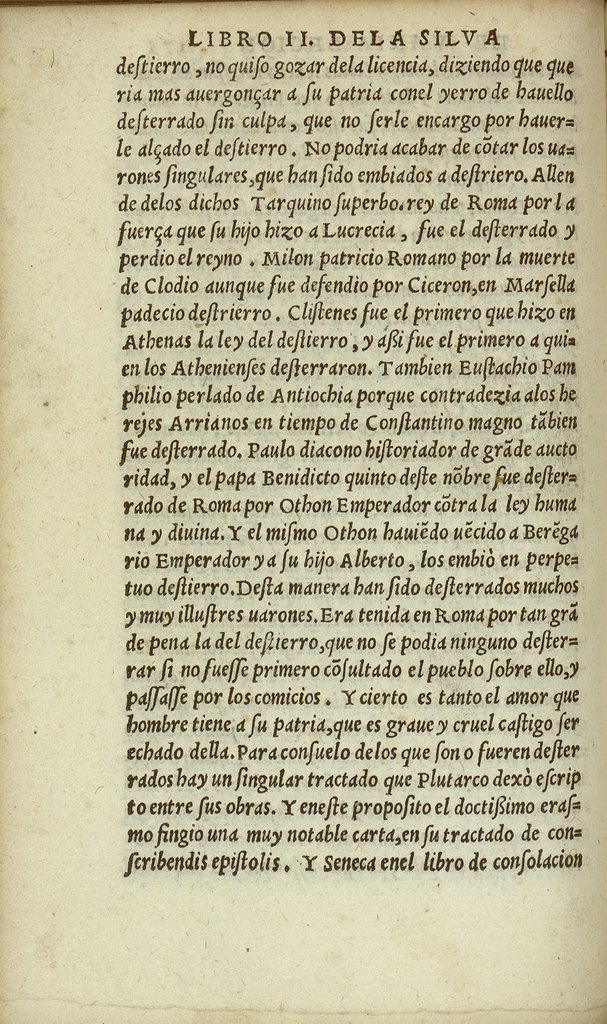 LIBRO II. DELA SILVA
deſtierro , no quiſo gozar dela licencia, diziendo que que
ria mas auergonçar a ſu patria conel yerro de hauello
deſterrado ſin culpa, que no ſerle encargo por hauer=
le alçado el deſtierro. No podria acabar de cõtar los ua=
rones ſingulares, que han ſido embiados a deſtriero. Allen
de delos dichos Tarquino ſuperbo. rey de Roma por la
fuerça que ſu hijo hizo a Lucrecia, fue el deſterrado y
perdio el reyno. Milon patricio Romano por la muerte
de Clodio aunque fue defendio por Ciceron, en Marſella
padecio deſtrierro. Cliſtenes fue el primero que hizo en
Athenas la ley del deſtierro, y aßi fue el primero a qui=
en los Athenienſes deſterraron. Tambien Euſtachio Pam
philio perlado de Antiochia porque contradezia alos he
rejes Arrianos en tiempo de Conſtantino magno tãbien
fue deſterrado. Paulo diacono hiſtoriador de grãde aucto
ridad, y el papa Benidicto quinto deſte nõbre fue deſter=
rado de Roma por Othon Emperador cõtra la ley huma
na y diuina. Y el miſmo Othon hauiẽdo uẽcido a Berẽga
rio Emperador y a ſu hijo Alberto, los embiò en perpe=
tuo deſtierro. Deſta manera han ſido deſterrados muchos
y muy illuſtres uarones. Era tenida en Roma por tan grã
de pena la del deſtierro, que no ſe podia ninguno deſter=
rar ſi no fueſſe primero cõſultado el pueblo ſobre ello, y
paſſaſſe por los comicios. Y cierto es tanto el amor que
hombre tiene a ſu patria, que es graue y cruel caſtigo ſer
echado della. Para conſuelo delos que ſon o fueren deſter
rados hay un ſingular tractado que Plutarco dexò eſcrip
to entre ſus obras. Y eneſte propoſito el doctißimo eraſ=
mo fingio una muy notable carta, en ſu tractado de con=
ſcribendis epiſtolis. Y Seneca enel libro de conſolacion